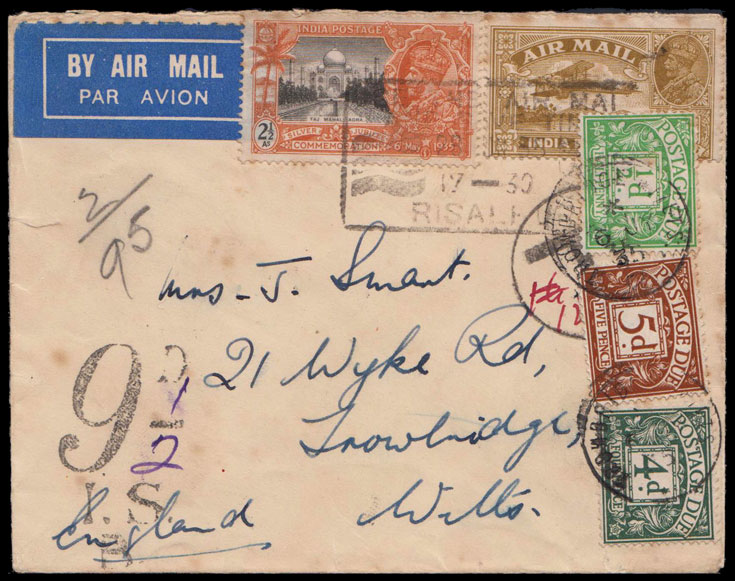 BY AIR MAIL
PAR AVION
INDIA POSTAGE
TAJ MAHAL, AGRA
2½
AS
SILVER JUBILEE
COMMEMORATION 6th May 1935
AIR MAIL
INDIA
AIR MAI
17 — 30
RISAL
POSTAGE DUE
½d
POSTAGE DUE
5d
FIVE PENCE
POSTAGE DUE
4d
2/
95
12
9
1
2
I.S
Mrs - J. Smart.
21 Wyke Rd,
Trowbridge,
Wilts.
England